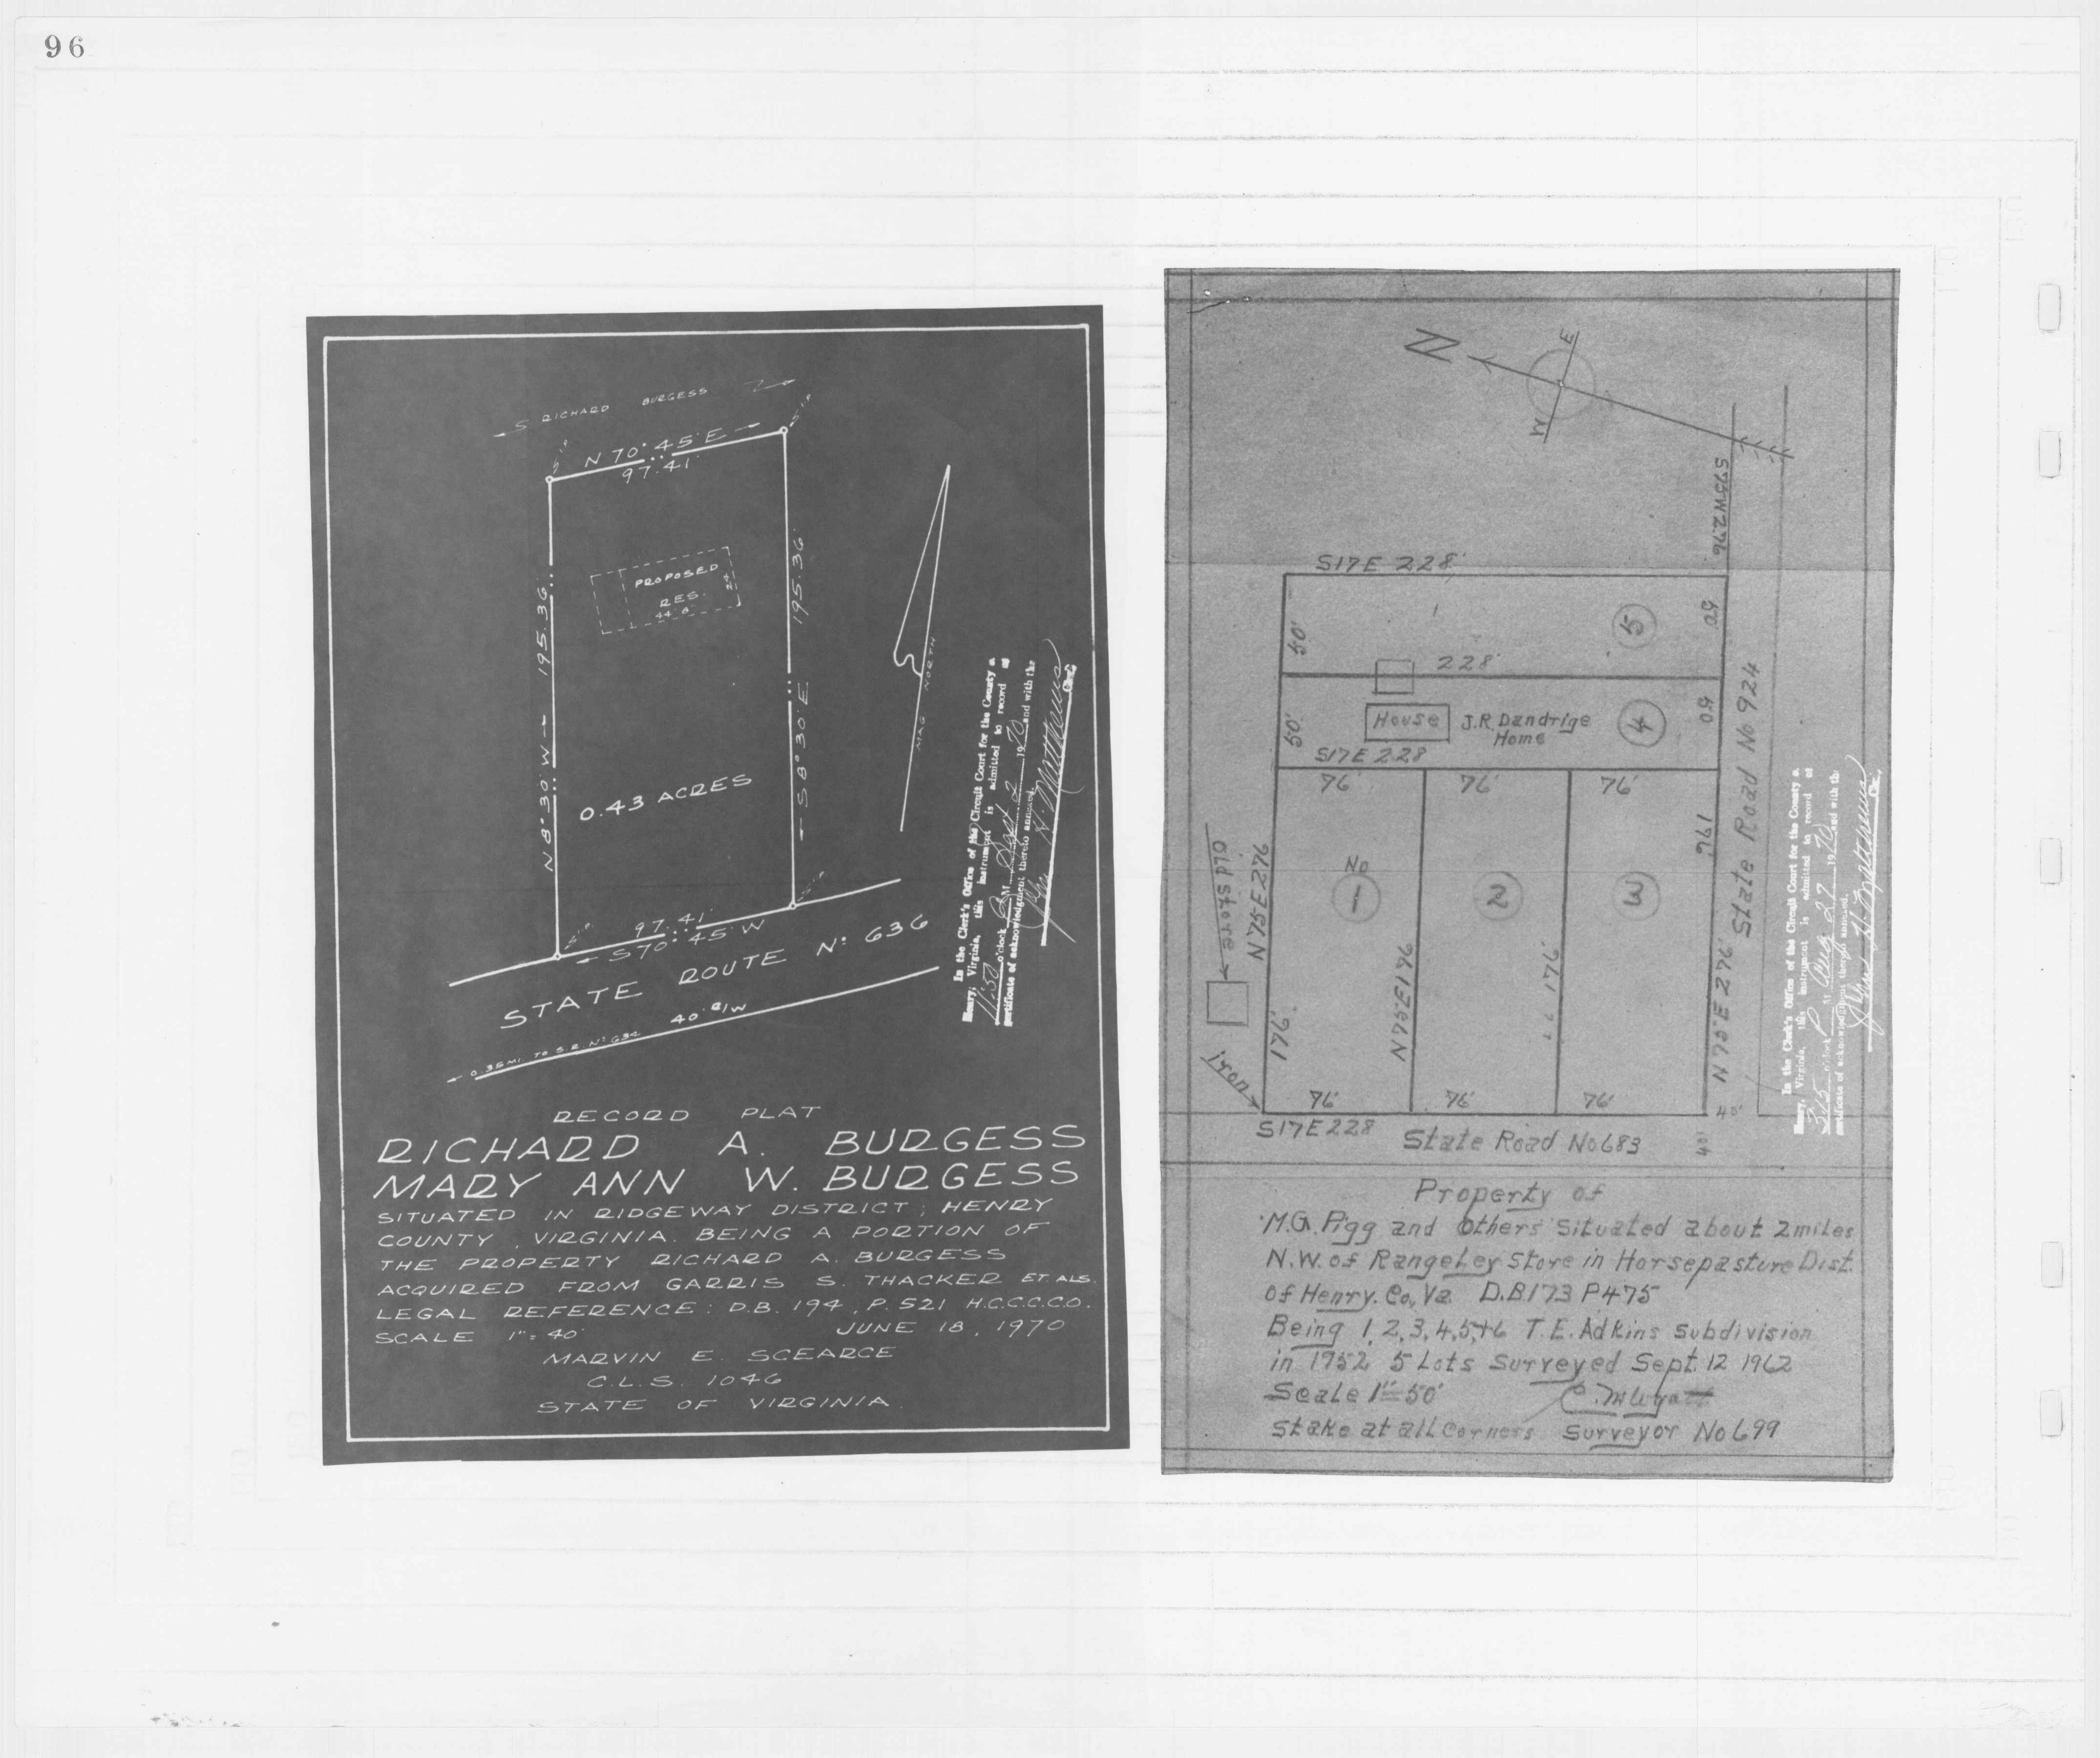 96
S RICHARD BURGESS
N 70° 45' E
97.41'
195.36'
N 8° 30' W
195.36'
S 8° 30' E
PROPOSED
RES.
44' 8"
24'
0.43 ACRES
MAG NORTH
97.41'
S 70° 45' W
STATE ROUTE Nº 636
40' R/W
0.35 MI. TO S.R. Nº 634
RECORD PLAT
RICHARD A. BURGESS
MARY ANN W. BURGESS
SITUATED IN RIDGEWAY DISTRICT, HENRY
COUNTY, VIRGINIA. BEING A PORTION OF
THE PROPERTY RICHARD A. BURGESS
ACQUIRED FROM GARRIS S. THACKER ET. ALS.
LEGAL REFERENCE: D.B. 194, P. 521 H.C.C.C.O.
SCALE 1"= 40' JUNE 18, 1970
MARVIN E. SCEARCE
C.L.S. 1046
STATE OF VIRGINIA
In the Clerk's Office of the Circuit Court for the County o
Henry, Virginia, this instrument is admitted to record at
11:50 o'clock A M Sept 2 1970 and with the
certificate of acknowledgment thereto annexed.
H. Matthews
Clerk
N
E
W
S75W276
S17E 228'
50'
5
50
228'
50'
House
J.R. Dandrige
Home
4
50
S17E 228
76'
76'
76'
State Road No 924
Old Store
N75E276
No
1
2
3
176'
N75E176
176'
176'
N75E 276'
iron
76'
76'
76'
40'
S17E228
State Road No 683
40'
Property of
M.G. Pigg and Others Situated about 2 miles
N.W. of Rangeley Store in Horsepasture Dist.
of Henry. Co., Va. D.B.173 P475
Being 1,2,3,4,5,+6 T.E. Adkins Subdivision
in 1952 5 Lots Surveyed Sept. 12 1962
Scale 1"=50'
Stake at all Corners Surveyor No 699
In the Clerk's Office of the Circuit Court for the County o
Henry, Virginia, this instrument is admitted to record at
3:15 o'clock P M Aug 27 1970 and with th
certificate of acknowledgment thereto annexed.
H. Matthews
Clerk